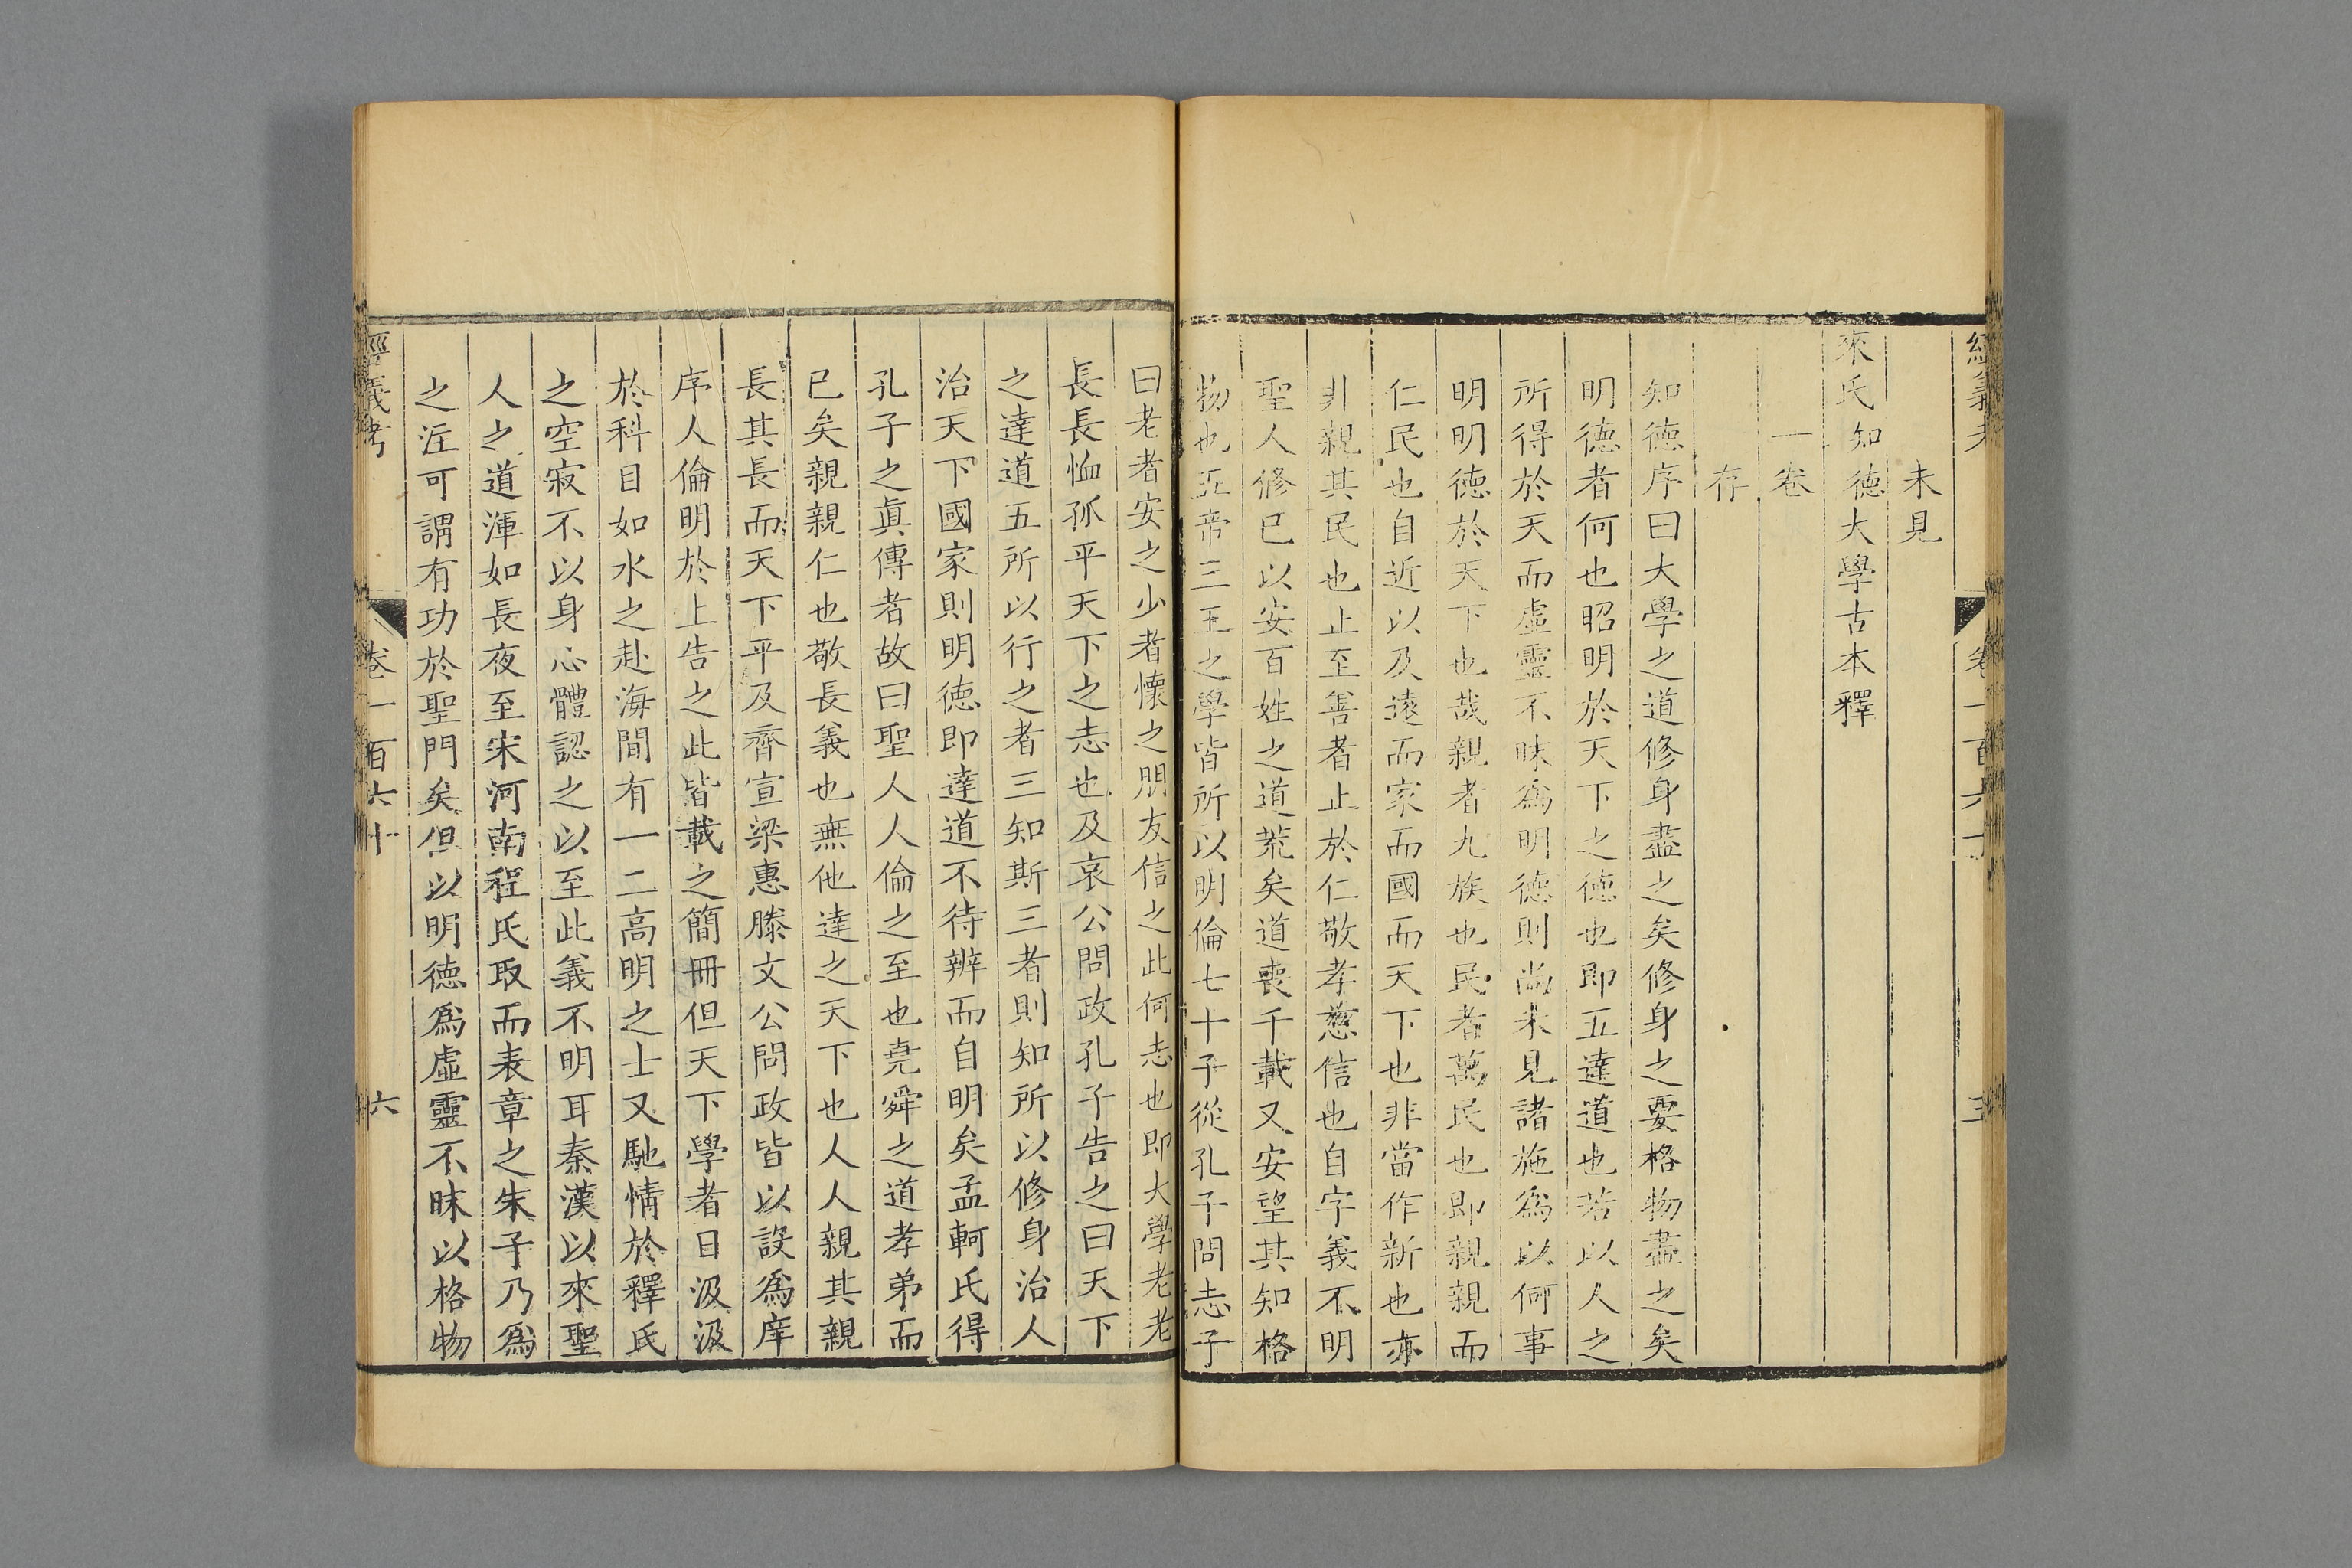 經義考 卷一百六十 五
未見
來氏知德大學古本釋
一卷
存
知德序曰大學之道修身盡之矣修身之要格物盡之矣
明德者何也昭明於天下之德也即五達道也若以人之
所得於天而虛靈不昧爲明德則尚未見諸施爲以何事
明明德於天下也哉親者九族也民者萬民也即親親而
仁民也自近以及遠而家而國而天下也非當作新也亦
非親其民也止至善者止於仁敬孝慈信也自字義不明
聖人修己以安百姓之道荒矣道喪千載又安望其知格
物也五帝三王之學皆所以明倫七十子從孔子問志子
曰老者安之少者懷之朋友信之此何志也即大學老老
長長恤孤平天下之志也及哀公問政孔子告之曰天下
之達道五所以行之者三知斯三者則知所以修身治人
治天下國家則明德即達道不待辨而自明矣孟軻氏得
孔子之眞傳者故曰聖人人倫之至也堯舜之道孝弟而
已矣親親仁也敬長義也無他達之天下也人人親其親
長其長而天下平及齊宣梁惠滕文公問政皆以設爲庠
序人倫明於上告之此皆載之簡冊但天下學者目汲汲
於科目如水之赴海間有一二高明之士又馳情於釋氏
之空寂不以身心體認之以至此義不明耳秦漢以來聖
人之道渾如長夜至宋河南程氏取而表章之朱子乃爲
之注可謂有功於聖門矣但以明德爲虛靈不昧以格物
經義考 卷一百六十 六